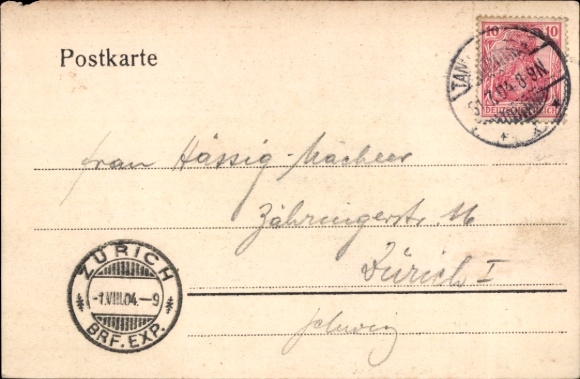 Postkarte
10 10
TAN
7.04.8-9N
DEUTSCHES REICH
Frau Hässig-Macheer
Zähringerstr. 16
Zürich I
Schweiz
ZÜRICH
-1.VIII.04.-9
BRF. EXP.